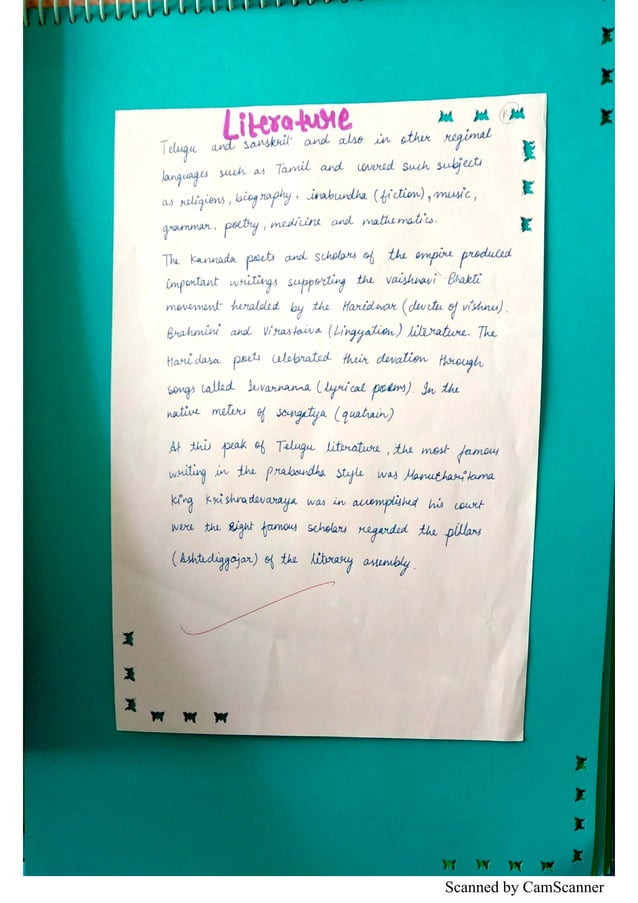 Literature
Telugu and sanskrit and also in other regimal
languages such as Tamil and covered such subjects
as religions, biography, inabundha (fiction), music,
grammar, poetry, medicine and mathematics.
The Kannada poets and scholars of the empire produced
important writings supporting the vaishnavi Bhakti
movement heralded by the Haridwar (devitee of vishnu).
Brahmini and Virastaiva (Lingyation) literature. The
Haridasa poets celebrated their devation through
songs called Jevarnama (lyrical poems). In the
native meters of sangatya (quatrain)
At this peak of Telugu literature, the most famous
writing in the prabandha style was Manucharitama
King Krishnadevaraya was in accomplished his court
were the Eight famous scholars regarded the pillars
(Ashtediggajar) of the literary assembly.
Scanned by CamScanner